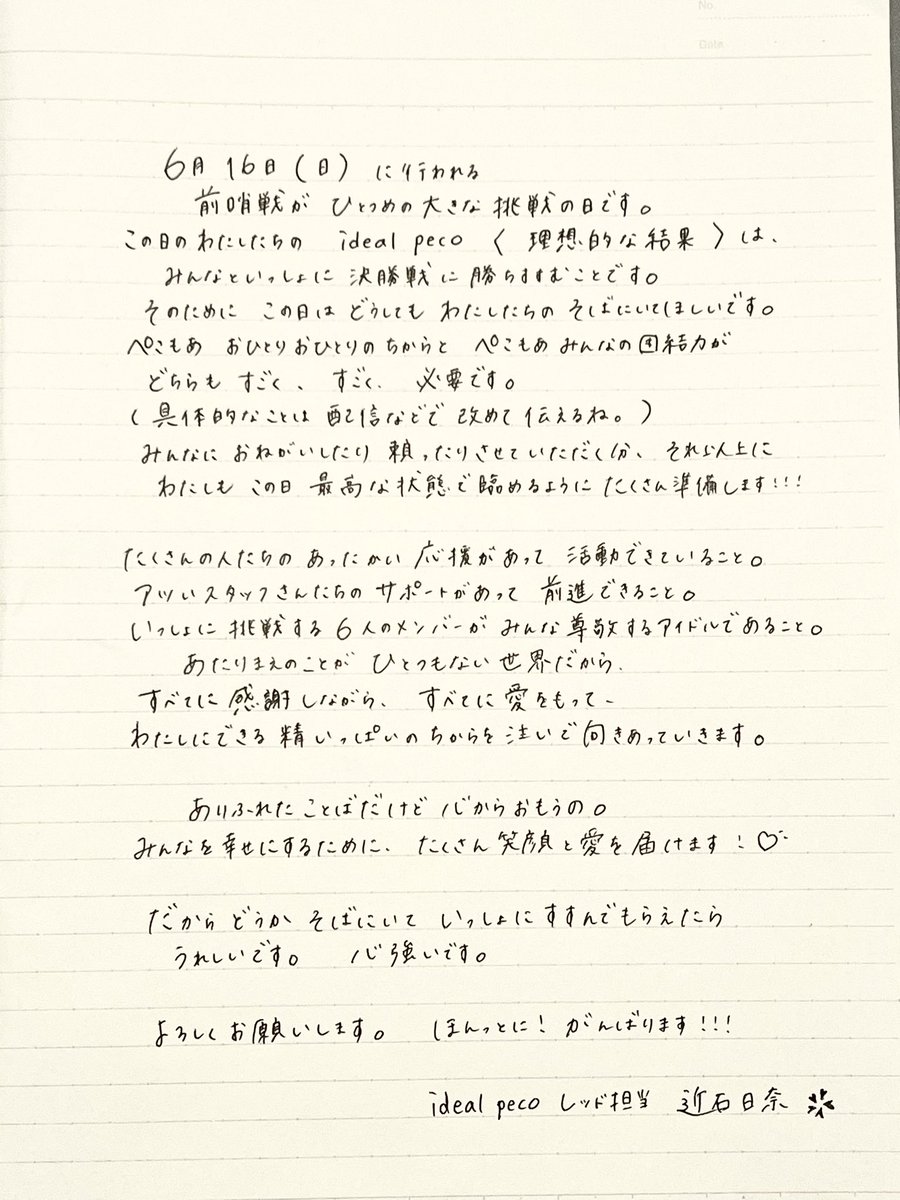 No.
Date
6月16日(日) に行われる
前哨戦が ひとつめの大きな挑戦の日です。
この日のわたしたちの ideal peco 〈 理想的な結果 〉は、
みんなといっしょに 決勝戦に 勝ちすすむことです。
そのために この日は どうしても わたしたちの そばにいてほしいです。
ぺこもあ おひとりおひとりのちからと ぺこもあ みんなの団結力が
どちらも すごく、すごく、必要です。
(具体的なことは 配信などで 改めて伝えるね。)
みんなに おねがいしたり 頼ったりさせていただく分、それ以上に
わたしも この日 最高な状態で臨めるように たくさん準備します!!!
たくさんの人たちの あったかい 応援があって 活動できていること。
アツいスタッフさんたちの サポートがあって 前進できること。
いっしょに 挑戦する 6人のメンバーが みんな尊敬するアイドルであること。
あたりまえのことが ひとつもない世界だから、
すべてに感謝しながら、すべてに愛をもって、
わたしにできる 精いっぱいのちからを 注いで 向きあっていきます。
ありふれた ことばだけど 心からおもうの。
みんなを幸せにするために、たくさん 笑顔と愛を届けます!♡
だから どうか そばにいて いっしょに すすんでもらえたら
うれしいです。 心強いです。
よろしくお願いします。 ほんっとに! がんばります!!!
ideal peco レッド担当 近石日奈